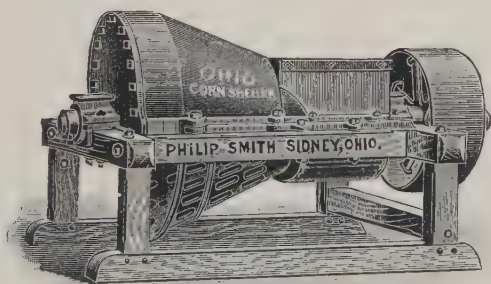 OHIO
CORN SHELLER
PHILIP SMITH SIDNEY, OHIO.